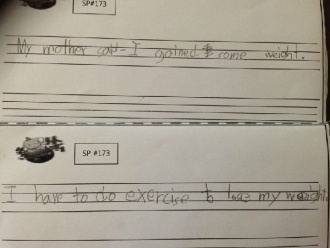 SP#173
My mother said I gained some weight.
SP #173
I have to do exercise to lose my weight.